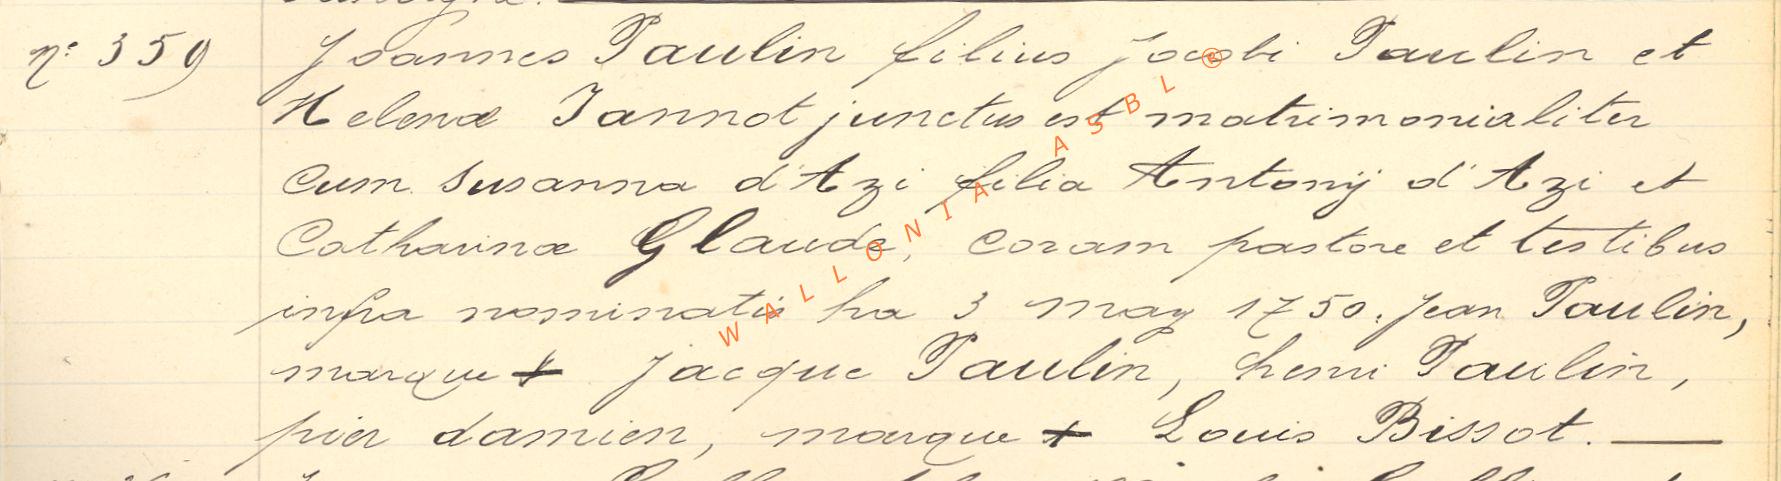 n° 359
Joannes Paulin filius Jacobi Paulin et
Helenæ Jannot junctus est matrimonialiter
cum Susanna d'Azi filia Antonij d'Azi et
Catharinæ Glaude, coram pastore et testibus
infra nominatis ha 3 may 1750. Jean Paulin,
marque + Jacque Paulin, henri Paulin,
pier damien, marque + Louis Bissot.
WALLONIA ASBL ®